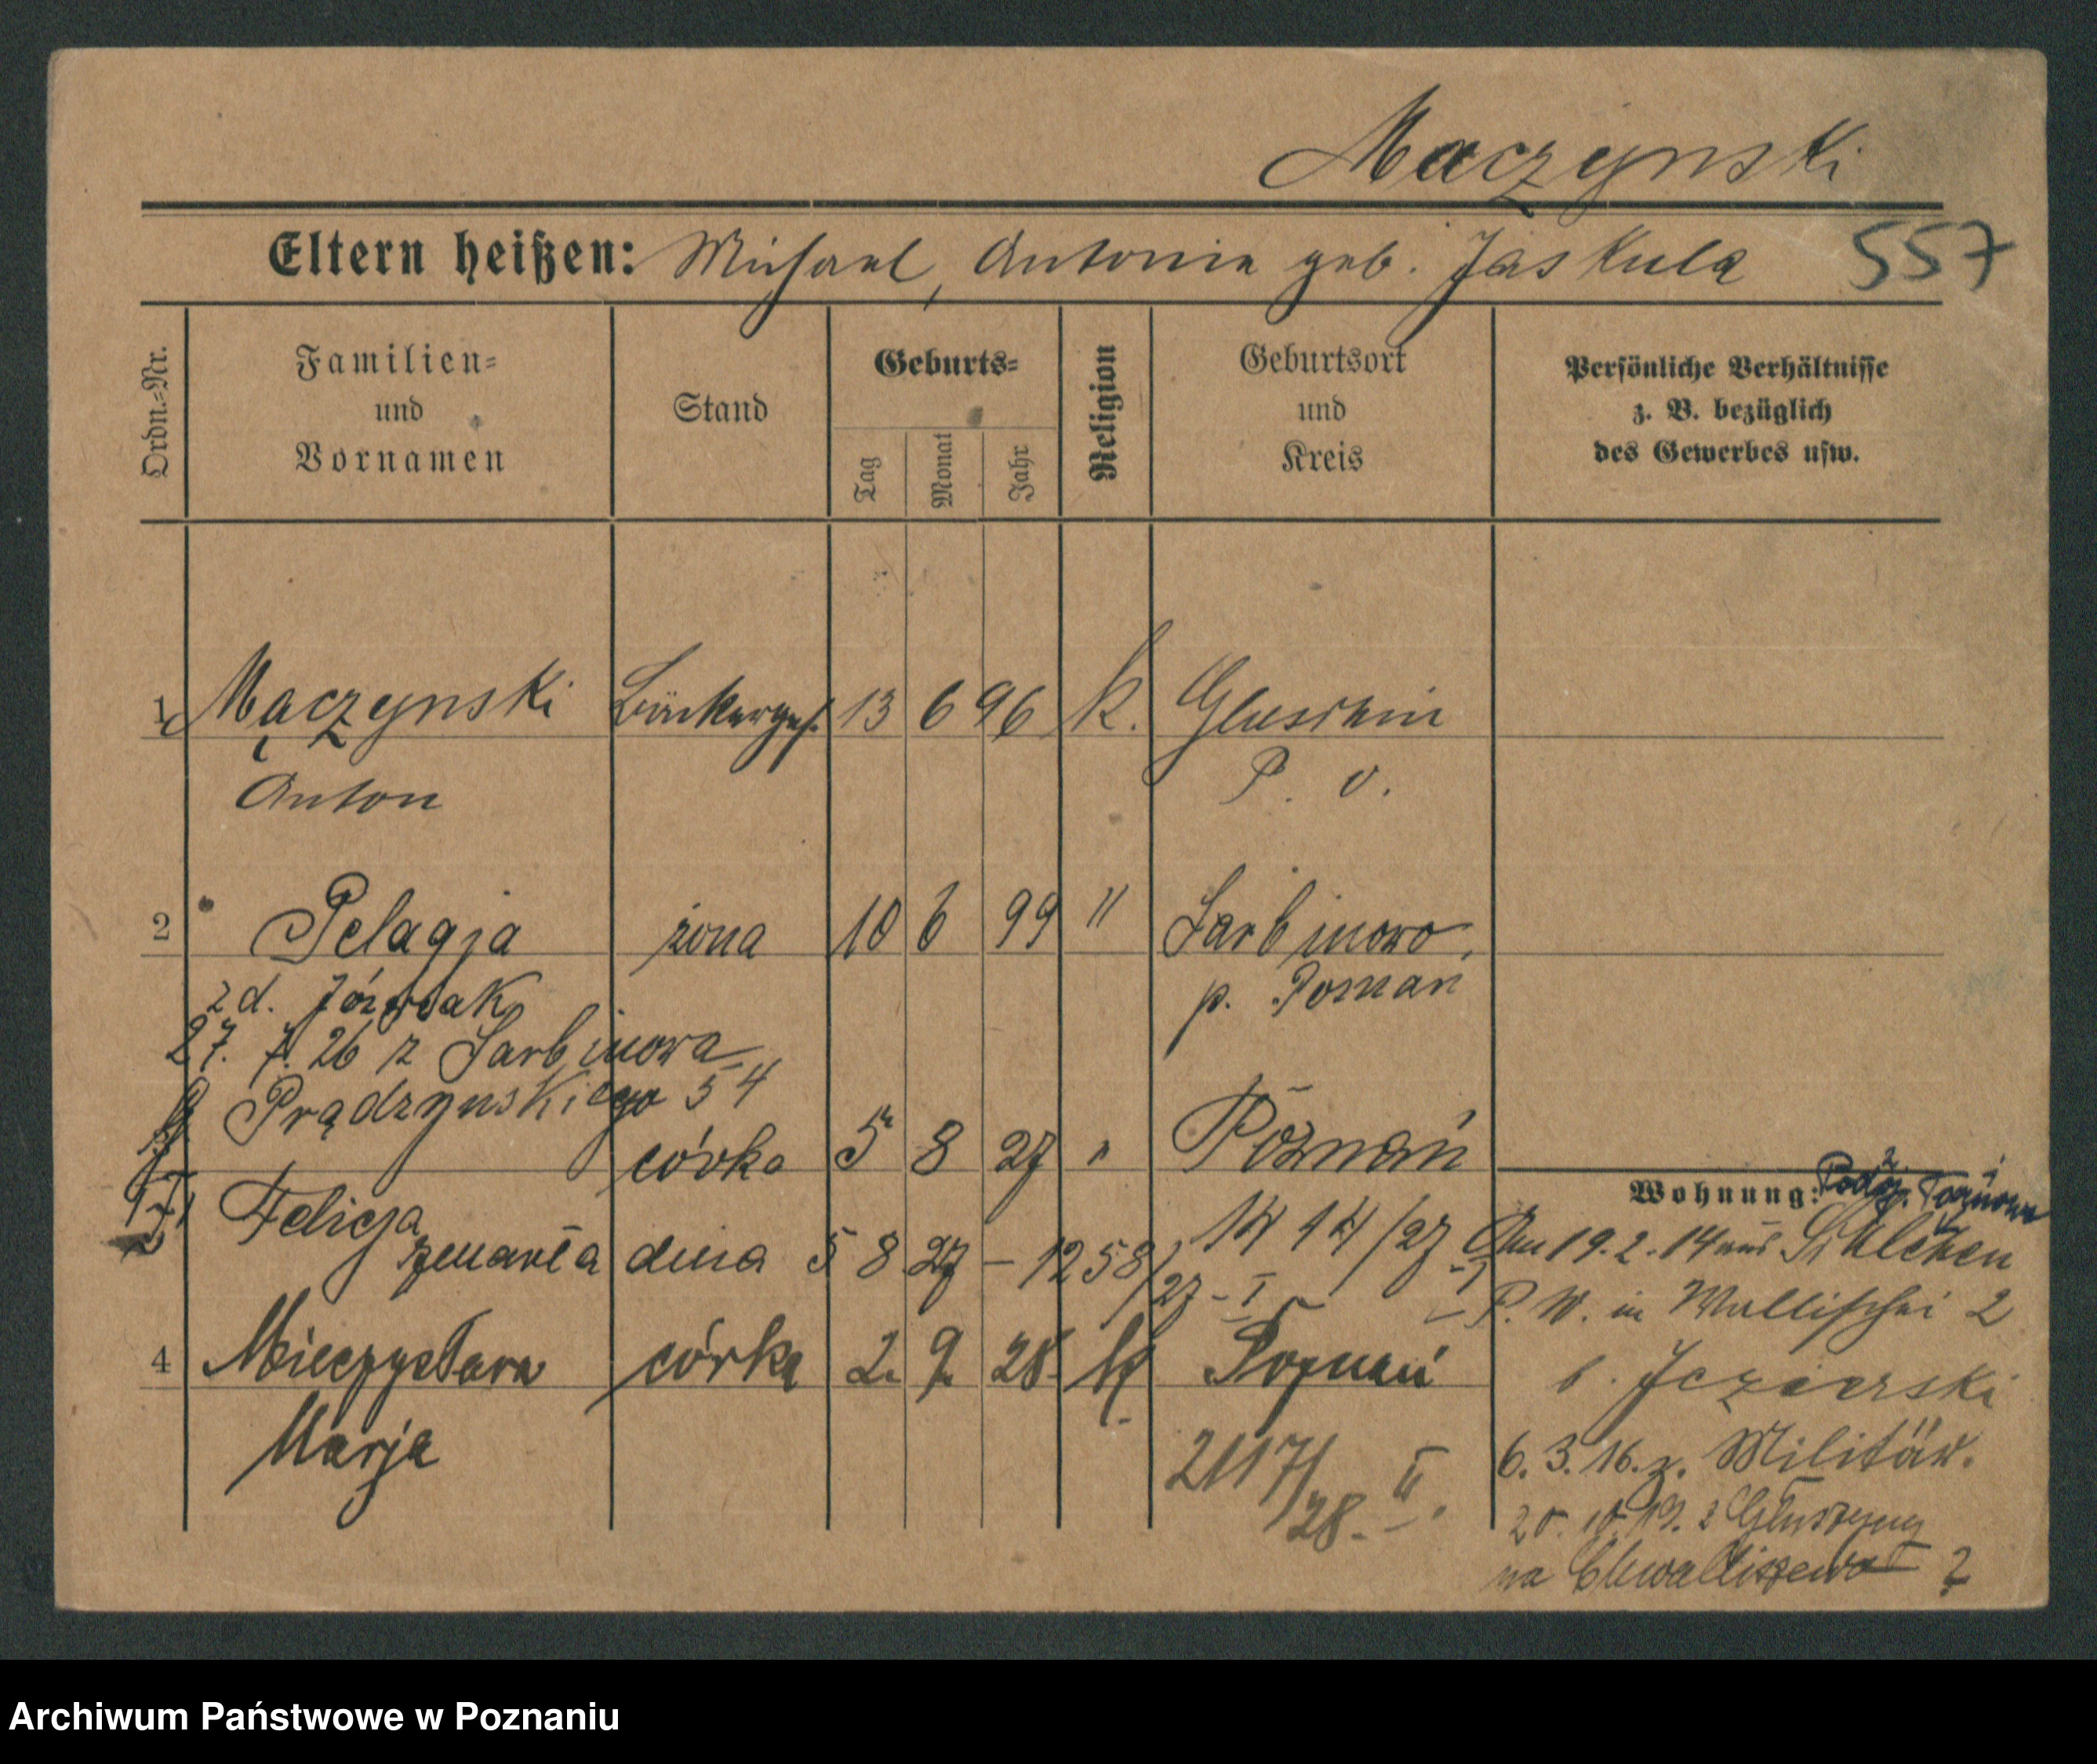 Maczynski
Eltern heißen: Michael, Antonie geb. Jaskula 557
Ordn.-Nr.
Familien-
und
Vornamen
Stand
Geburts-
Tag
Monat
Jahr
Religion
Geburtsort
und
Kreis
Persönliche Verhältnisse
z. B. bezüglich
des Gewerbes usw.
1 Mączynski Bäckerges. 13 6 96 K. Gluschin
Anton P. O.
2 Pelagja żona 10 6 99 " Sarbinowo,
zd. Józwiak p. Poznań
27. 7. 26 z Sarbinowa
Prądzynskiego 54
córka 5 8 27 " Poznań
Felicja 14 14/27 - I
zmarła dnia 5 8 27 - 1258/27 - I
4 Mieczysława córka 2. 9. 28. K. Poznań
Marja 2117/28. II.
Wohnung:
Am 19. 2. 14 aus
P. W. in Wallischei 2
b. Jezierski
6. 3. 16. z. Militär.
20. 10. 19. z Głuszyny
na Chwaliszewo 2
Archiwum Państwowe w Poznaniu